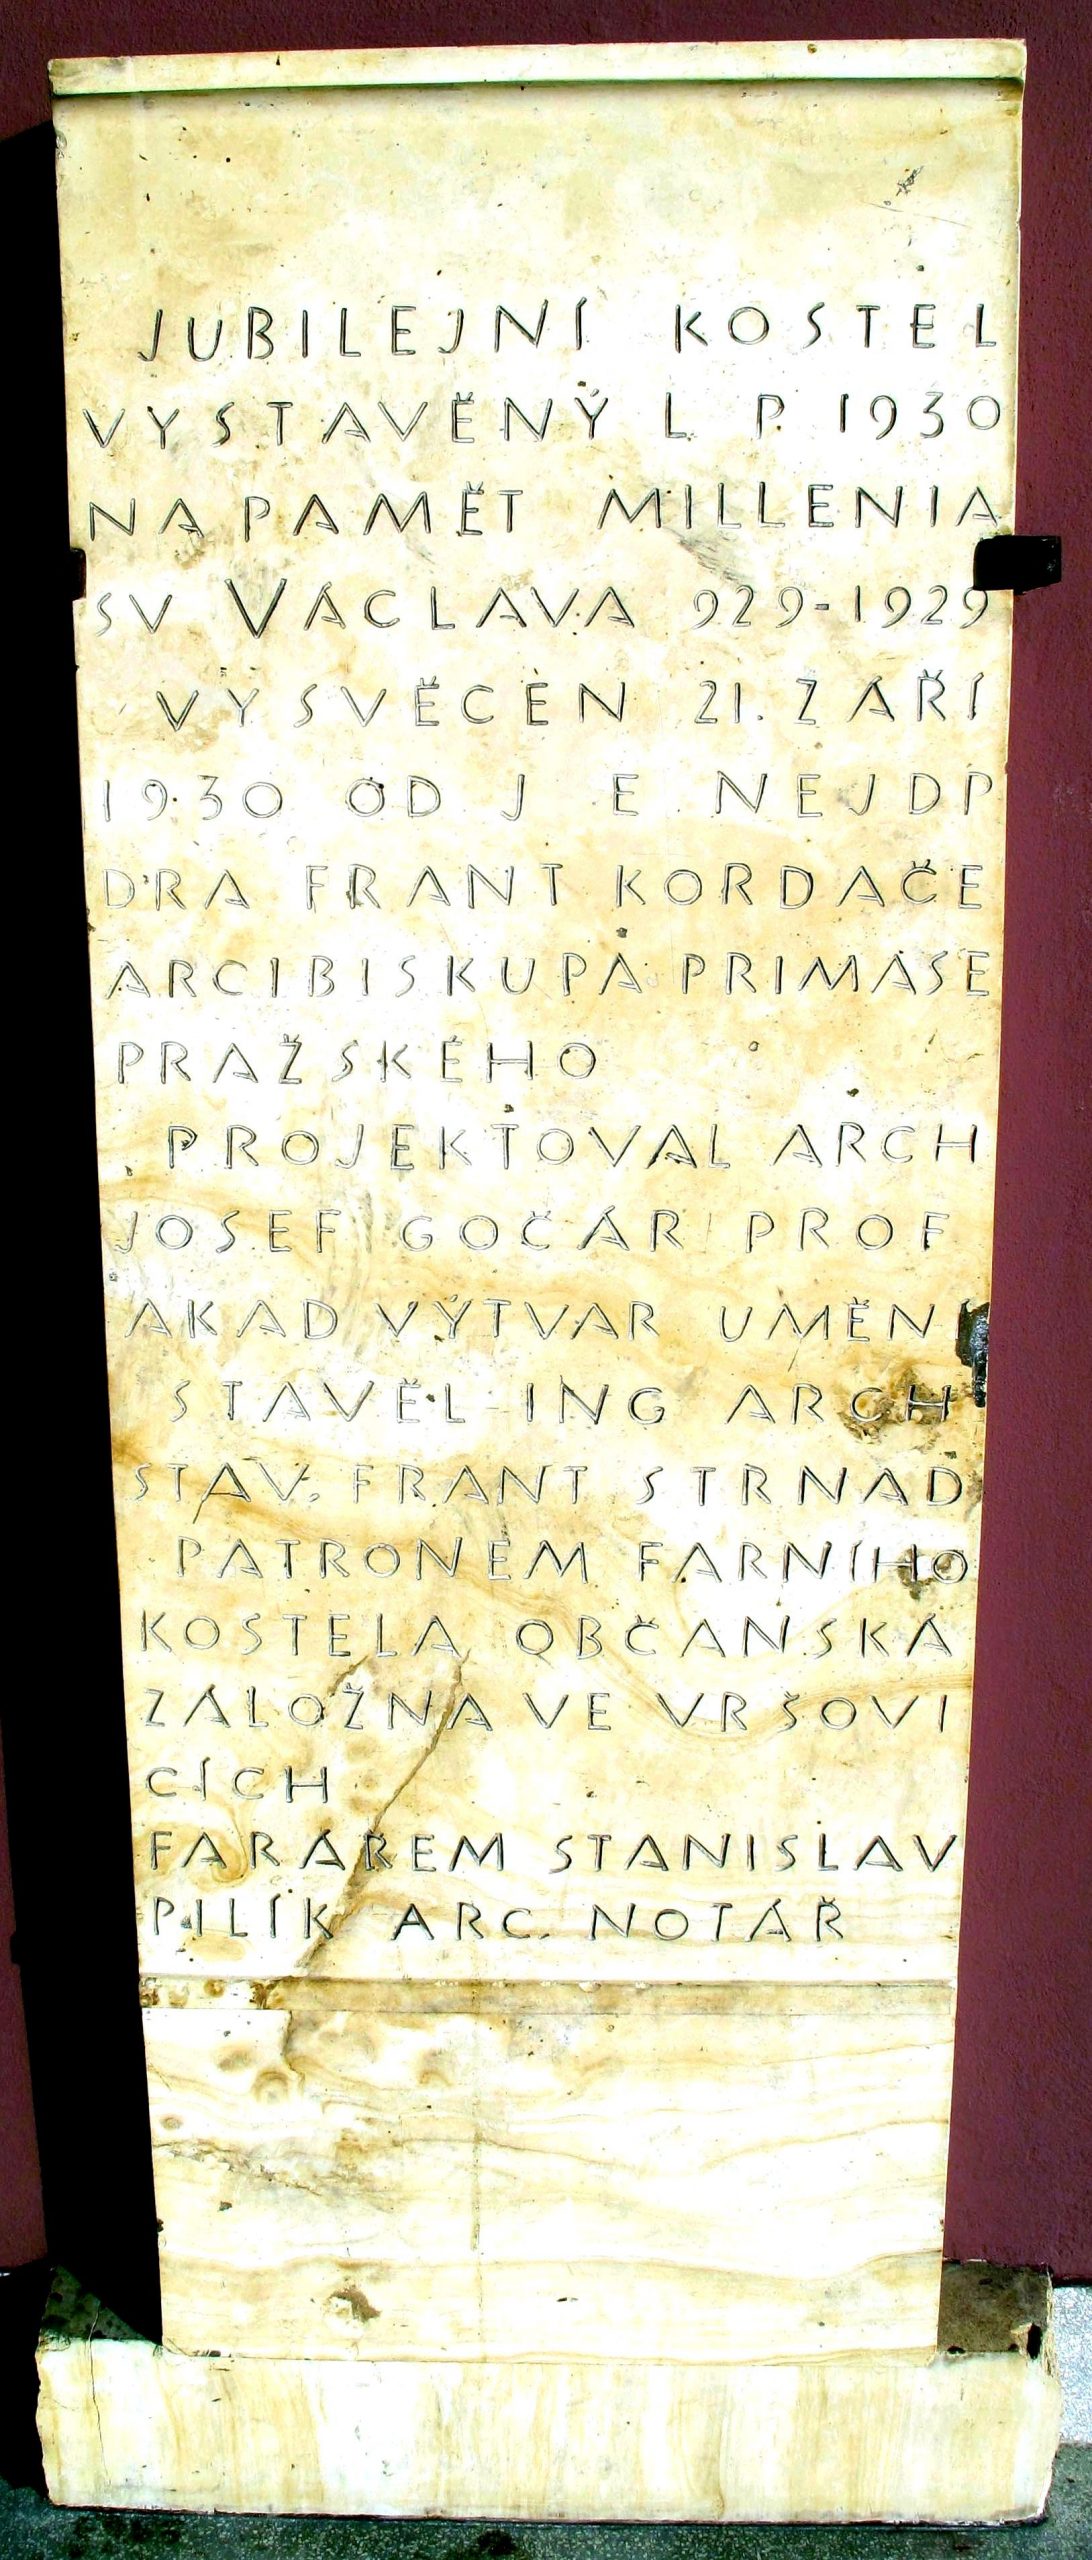 JUBILEJNÍ KOSTEL
VYSTAVĚNÝ L P 1930
NA PAMĚT MILLENIA
SV VÁCLAVA 929-1929
VYSVĚCEN 21. ZÁŘÍ
1930 OD J E NEJDP
DRA FRANT KORDAČE
ARCIBISKUPA PRIMASE
PRAŽSKÉHO
PROJEKTOVAL ARCH
JOSEF GOČÁR PROF
AKAD VÝTVAR UMĚNÍ
STAVĚL ING ARCH
STAV. FRANT STRNAD
PATRONEM FARNÍHO
KOSTELA OBČANSKÁ
ZÁLOŽNA VE VRŠOVI
CÍCH
FARÁŘEM STANISLAV
PILÍK ARC. NOTÁŘ